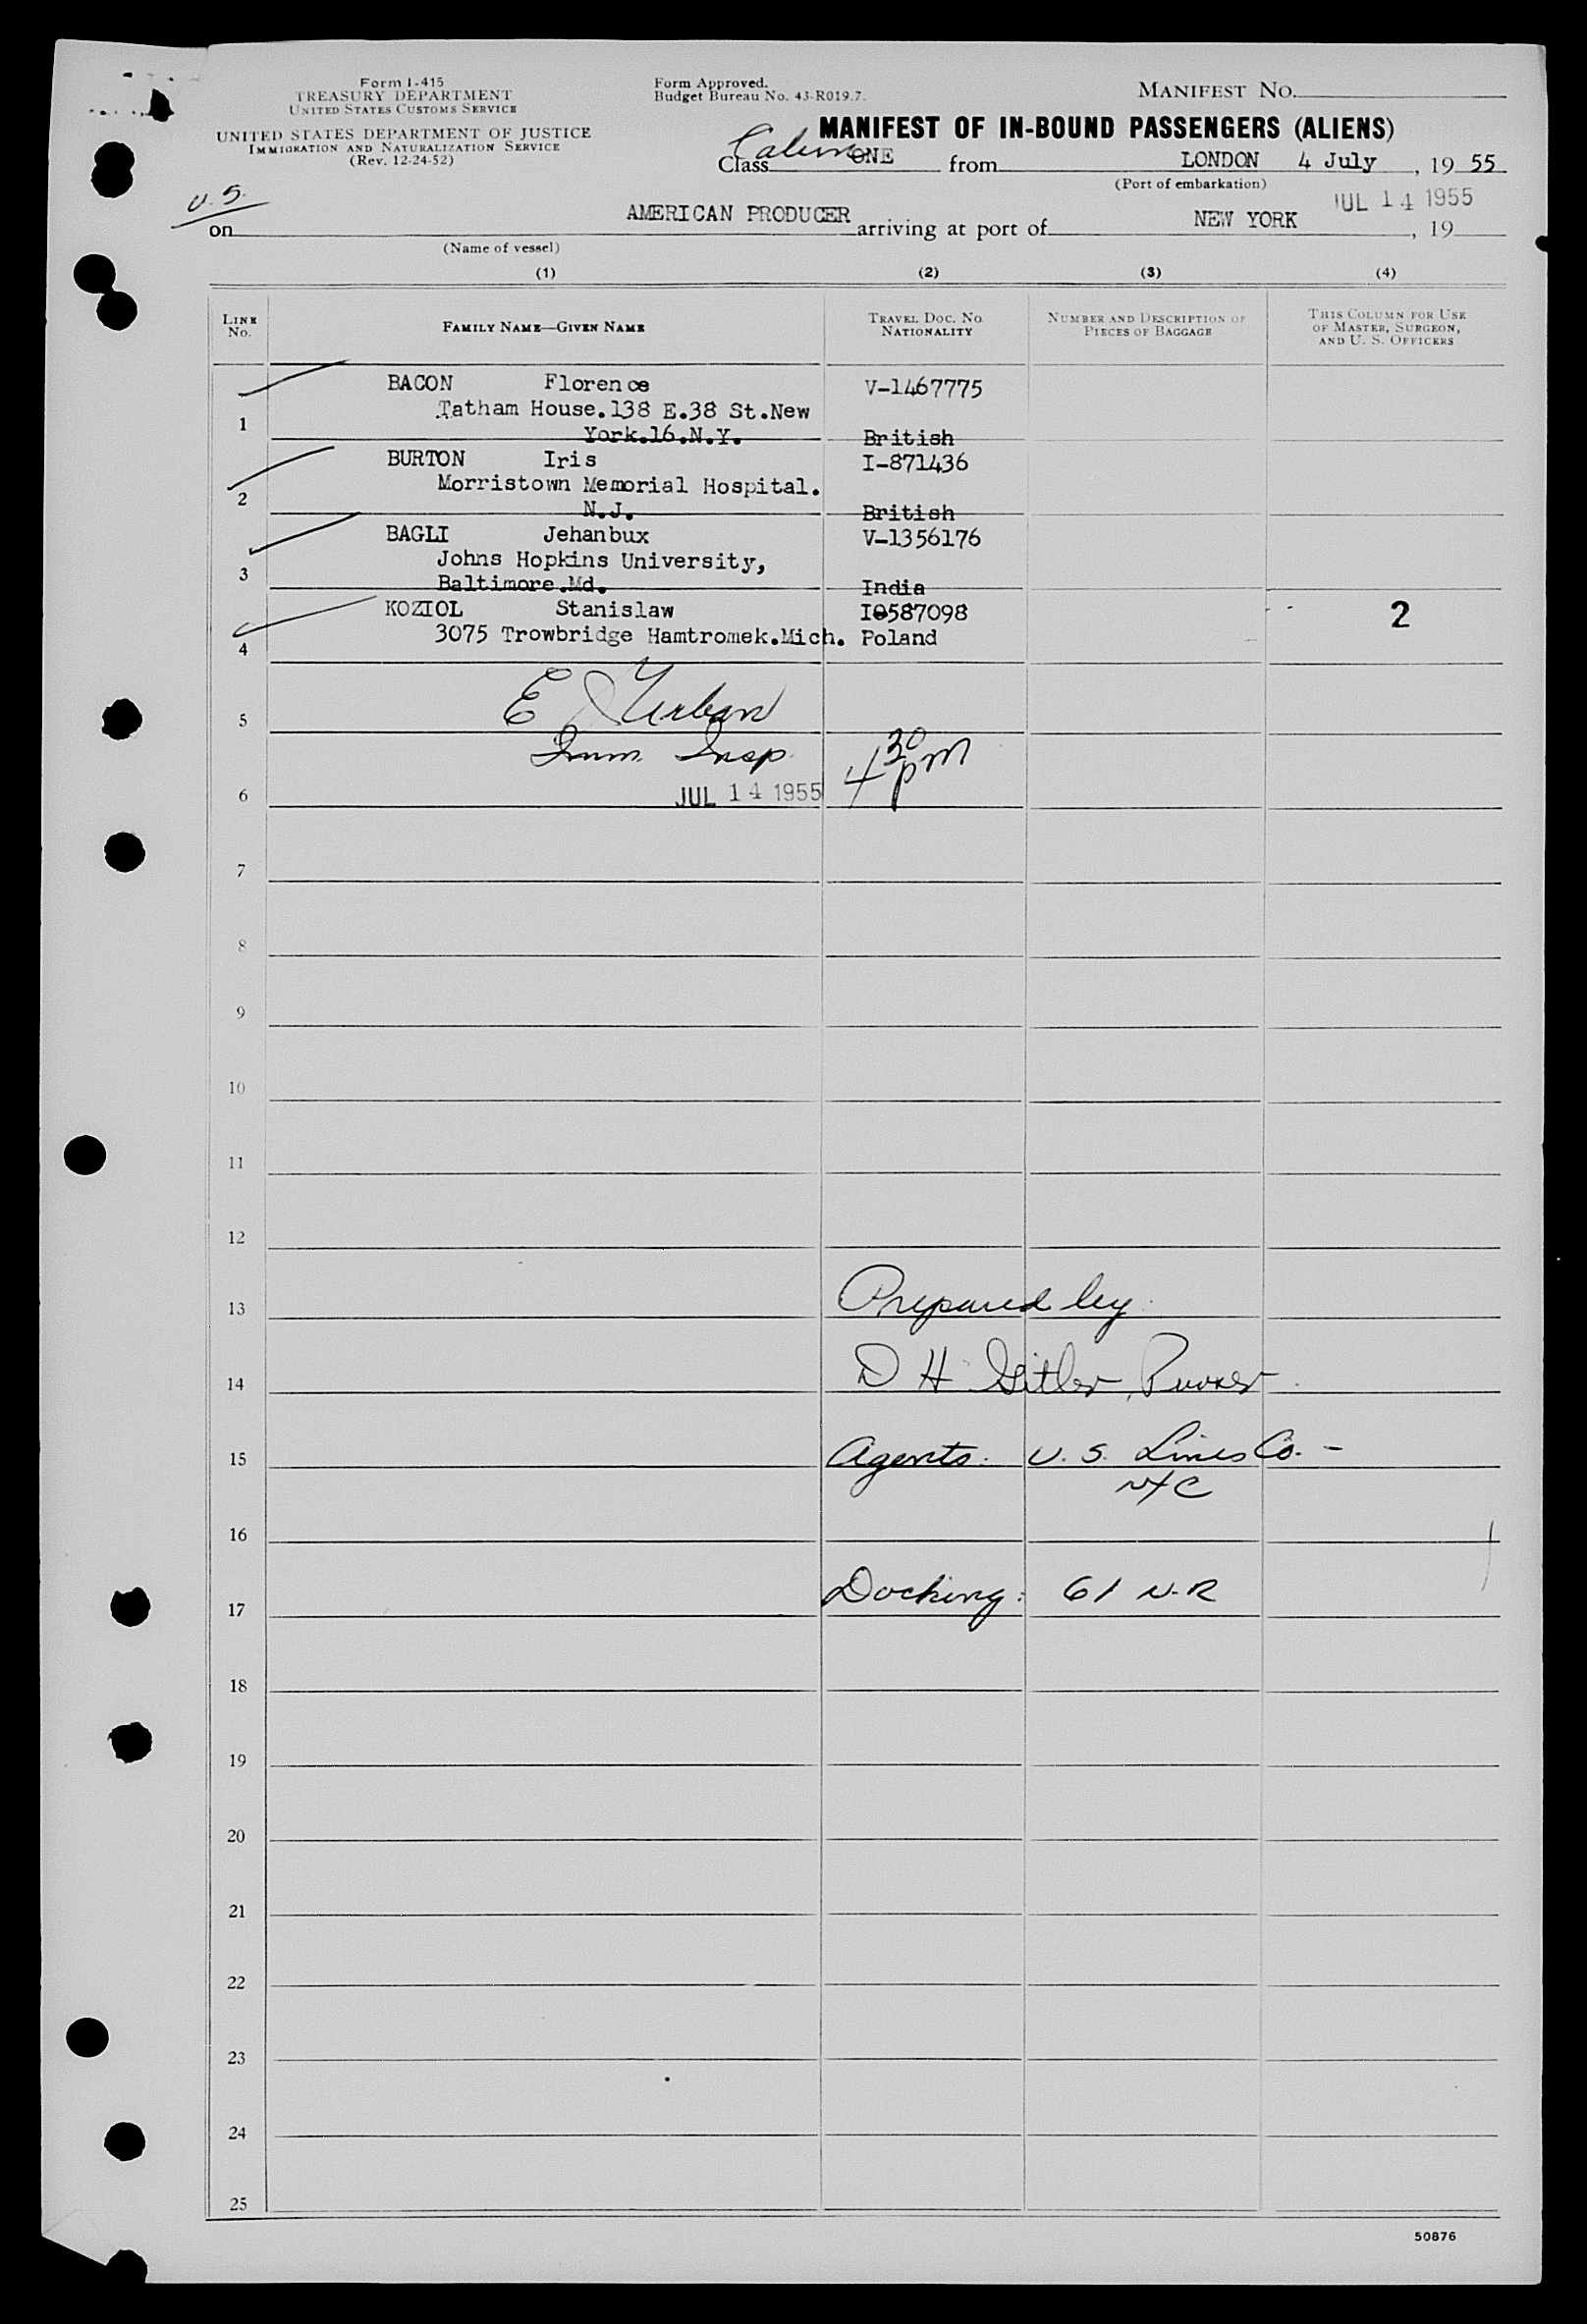 Form I-415
TREASURY DEPARTMENT
UNITED STATES CUSTOMS SERVICE
UNITED STATES DEPARTMENT OF JUSTICE
IMMIGRATION AND NATURALIZATION SERVICE
(Rev. 12-24-52)
Form Approved.
Budget Bureau No. 43-R019.7.
MANIFEST NO.
MANIFEST OF IN-BOUND PASSENGERS (ALIENS)
Class Cabin ONE from LONDON 4 July, 19 55
(Port of embarkation)
U.S.
JUL 14 1955
on AMERICAN PRODUCER arriving at port of NEW YORK, 19
(Name of vessel)
(1) (2) (3) (4)
LINE No. FAMILY NAME—GIVEN NAME TRAVEL DOC. NO. NATIONALITY NUMBER AND DESCRIPTION OF PIECES OF BAGGAGE THIS COLUMN FOR USE OF MASTER, SURGEON, AND U. S. OFFICERS
BACON Florence V-1467775
1 Tatham House.138 E.38 St.New
York.16.N.Y. British
BURTON Iris I-871436
2 Morristown Memorial Hospital.
N.J. British
BAGLI Jehanbux V-1356176
3 Johns Hopkins University,
Baltimore.Md. India
KOZIOL Stanislaw I0587098 2
4 3075 Trowbridge Hamtromek.Mich. Poland
5 E Urban
Imm Insp. 4 30 pm
6 JUL 14 1955
7
8
9
10
11
12
13 Prepared by
14 D H Purser
15 Agents: U.S. Lines Co. -
NYC
16
17 Docking: 61 N.R
18
19
20
21
22
23
24
25
50876